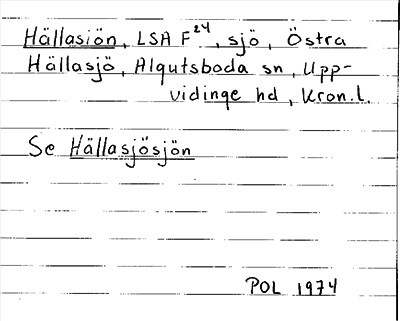 Hällasjön, LSA F²⁴, sjö, Östra
Hällasjö, Algutsboda sn, Upp-
vidinge hd, Kron.l.
Se Hällasjösjön
POL 1974